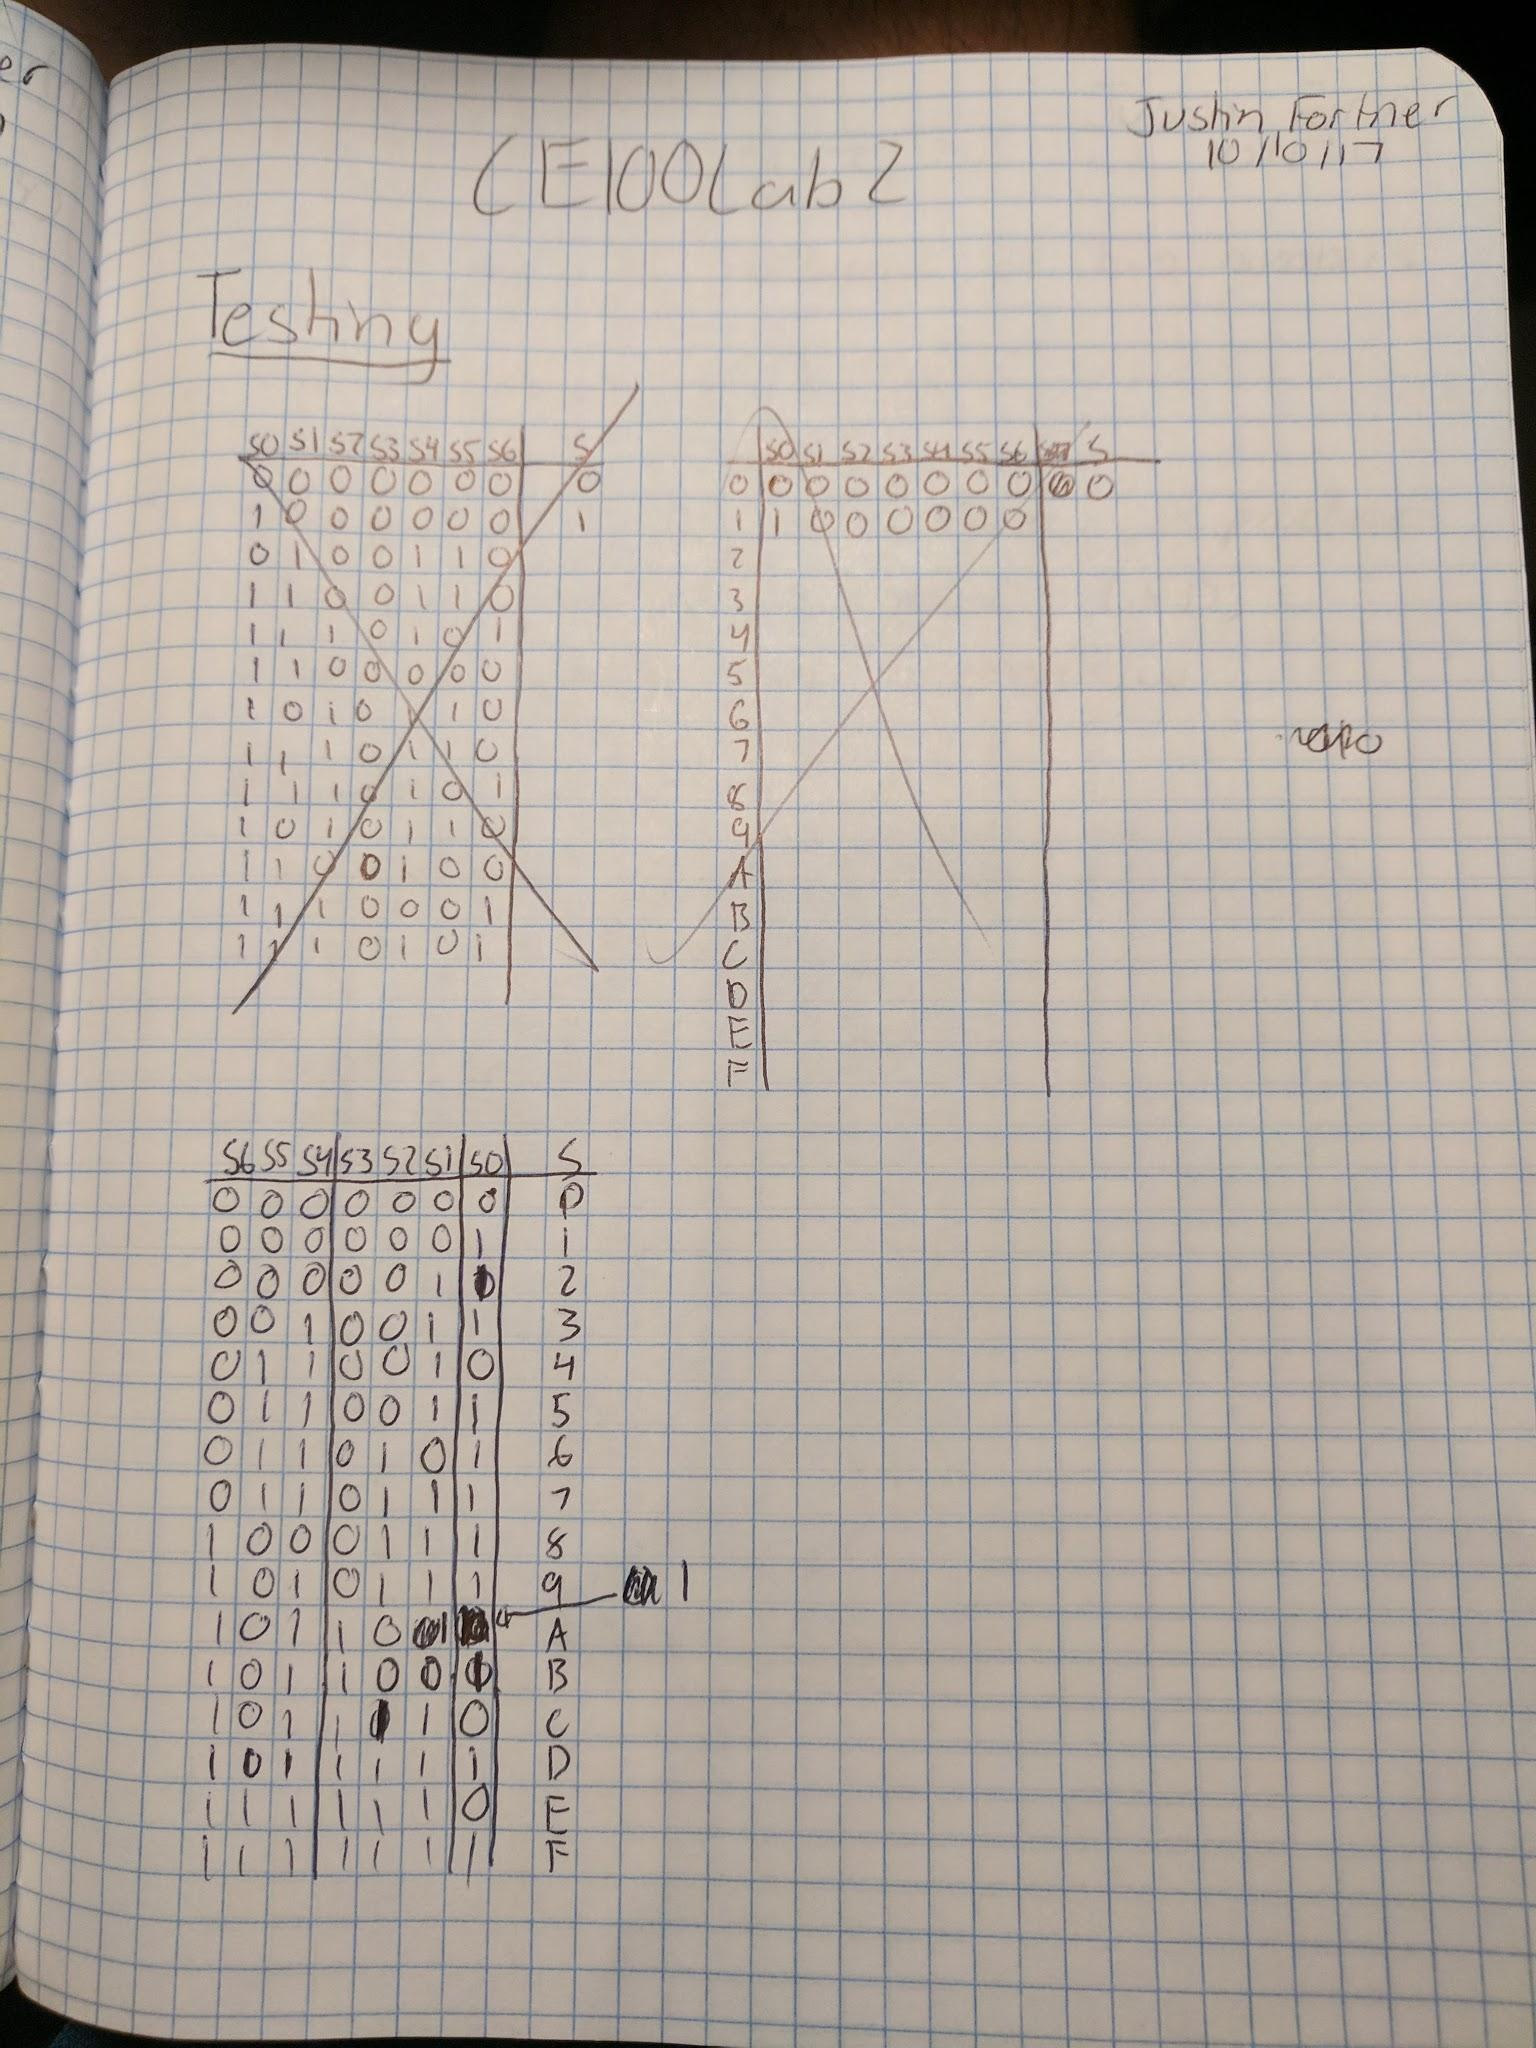 er
Justin Fortner
10/10/17
CE100 Lab 2
Testing
S0 S1 S2 S3 S4 S5 S6 S
0 0 0 0 0 0 0 0
1 0 0 0 0 0 0 1
0 1 0 0 1 1 0
1 1 0 0 1 1 0
1 1 1 0 1 0 1
1 1 0 0 0 0 0
1 0 1 0 1 1 0
1 1 1 0 1 1 0
1 1 1 0 1 0 1
1 0 1 0 1 1 0
1 1 0 0 1 0 0
1 1 1 0 0 0 1
1 1 1 0 1 0 1
S0 S1 S2 S3 S4 S5 S6 S
0 0 0 0 0 0 0 0 0
1 1 0 0 0 0 0 0
2
3
4
5
6
7
8
9
A
B
C
D
E
F
S6 S5 S4 S3 S2 S1 S0 S
0 0 0 0 0 0 0 0
0 0 0 0 0 0 1 1
0 0 0 0 0 1 2
0 0 1 0 0 1 1 3
0 1 1 0 0 1 0 4
0 1 1 0 0 1 1 5
0 1 1 0 1 0 1 6
0 1 1 0 1 1 1 7
1 0 0 0 1 1 1 8
1 0 1 0 1 1 1 9
1
1 0 1 1 0 1 A
1 0 1 1 0 0 B
1 0 1 1 1 0 C
1 0 1 1 1 1 1 D
1 1 1 1 1 1 0 E
1 1 1 1 1 1 1 F